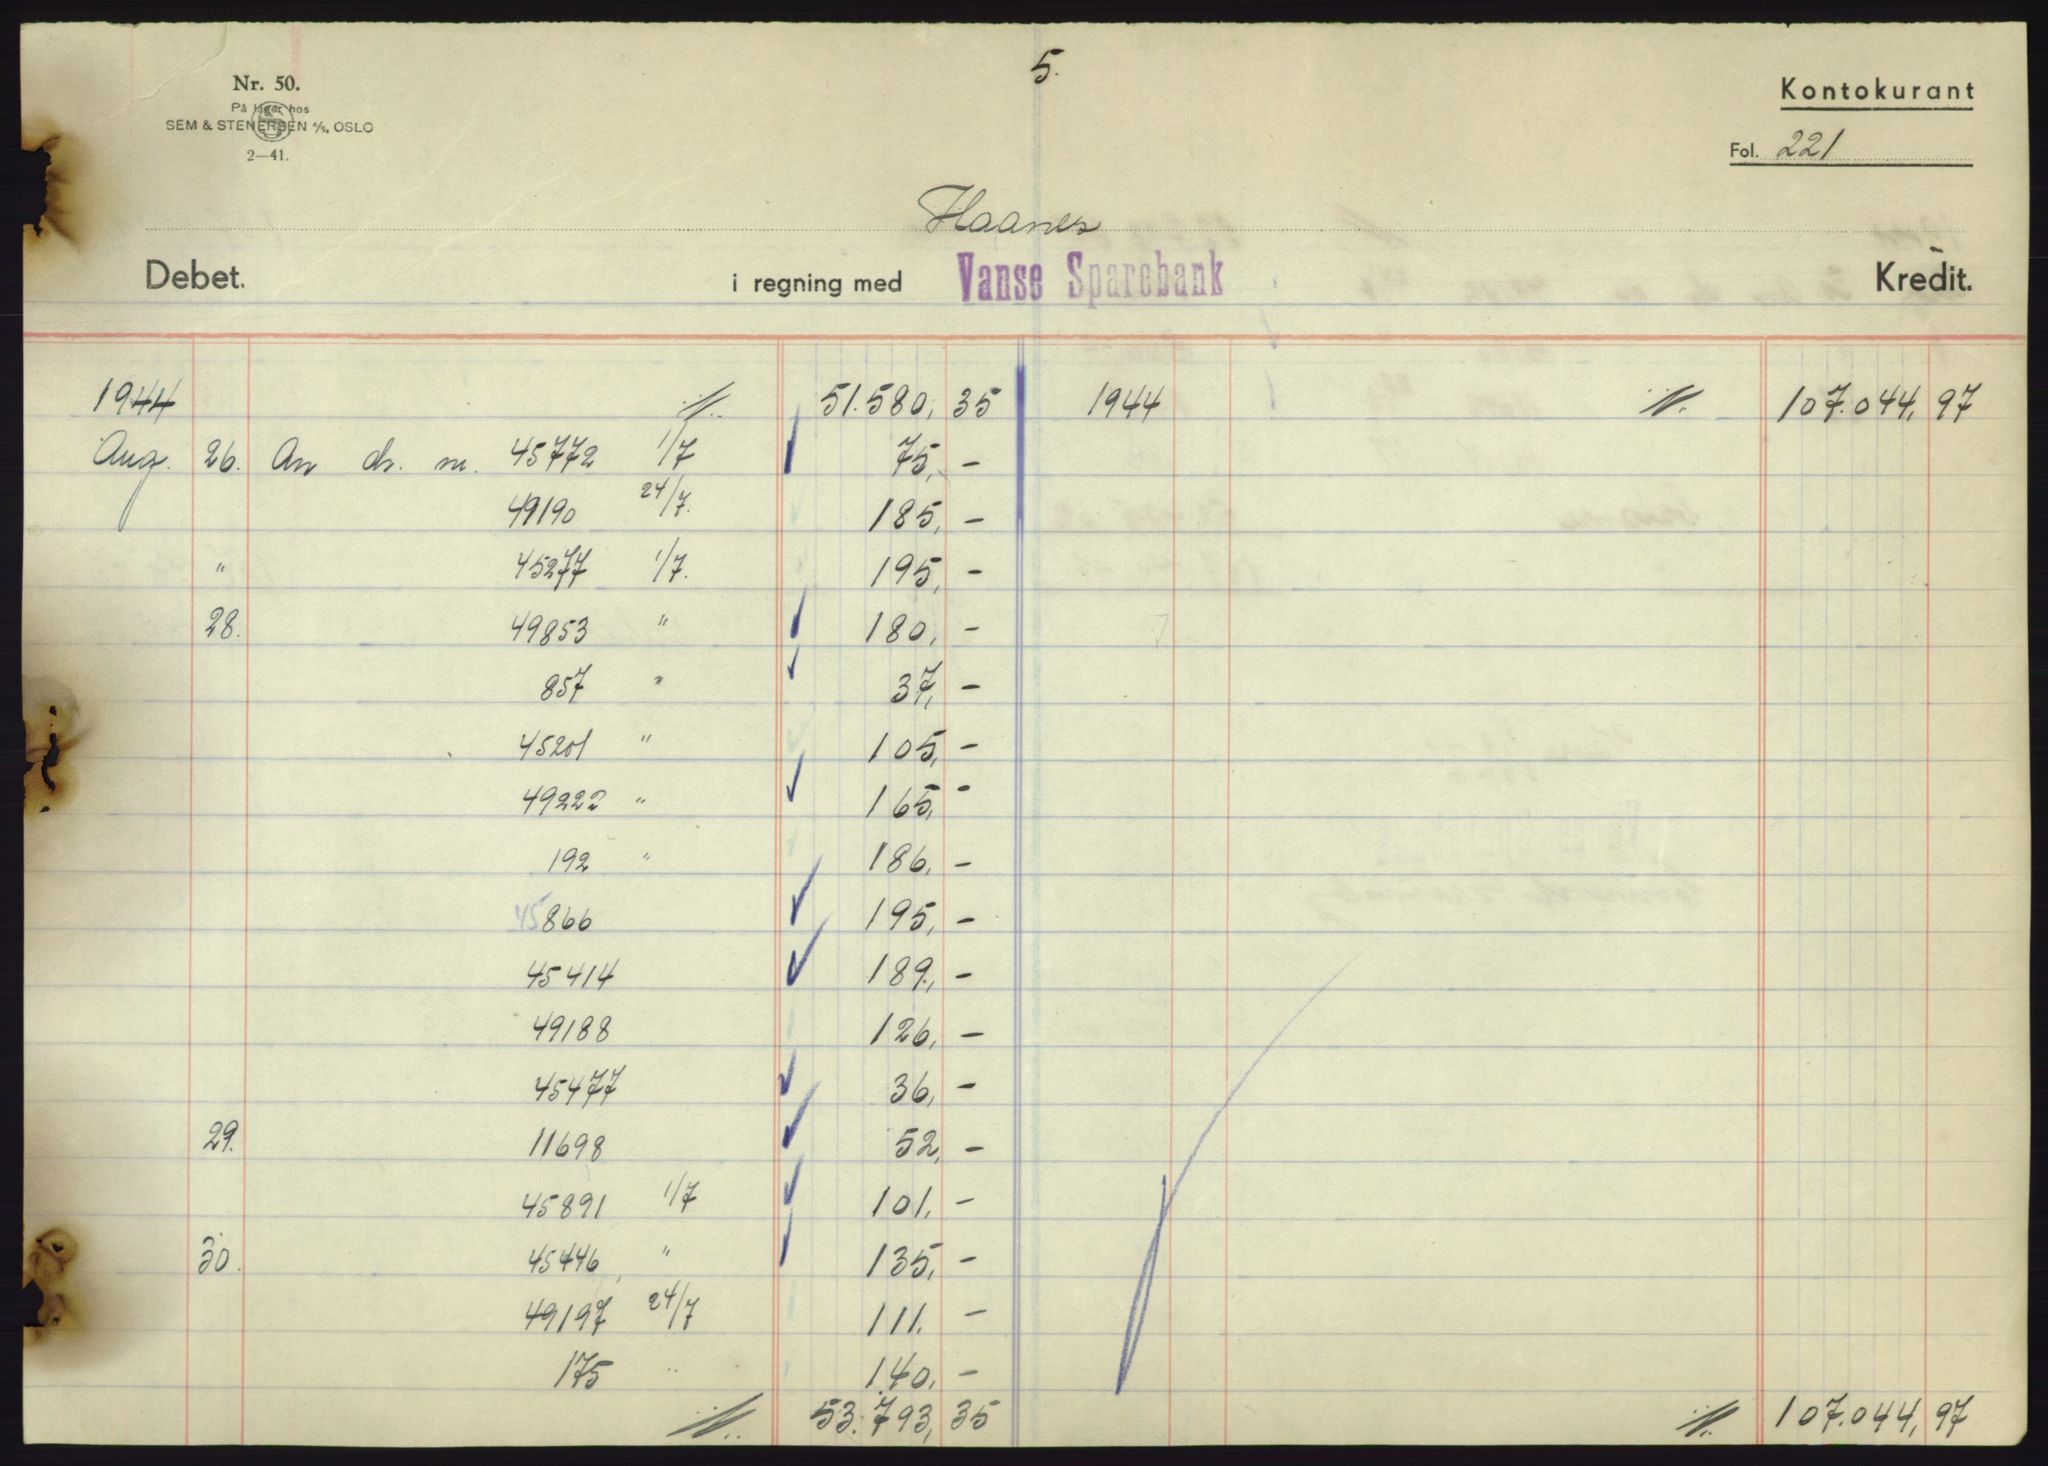 5.
Nr. 50.
På lager hos
SEM & STENERSEN A/S, OSLO
2—41.
Kontokurant
Fol. 221
Haanes
Debet. i regning med Vanse Sparebank Kredit.
1944 51.580, 35 1944 107.044, 97
Aug. 26. An ch. nr. 45772 1/7 75, –
49190 24/7. 185, –
" 45277 1/7. 195, –
28. 49853 " 180, –
857 " 37, –
45201 " 105, –
49222 " 165, –
192 " 186, –
45866 195, –
45414 189, –
49188 126, –
45477 36, –
29. 11698 52, –
45891 1/7 101, –
30. 45446 " 135, –
49197 24/7 111. –
175 " 140, –
53.793, 35 107.044, 97